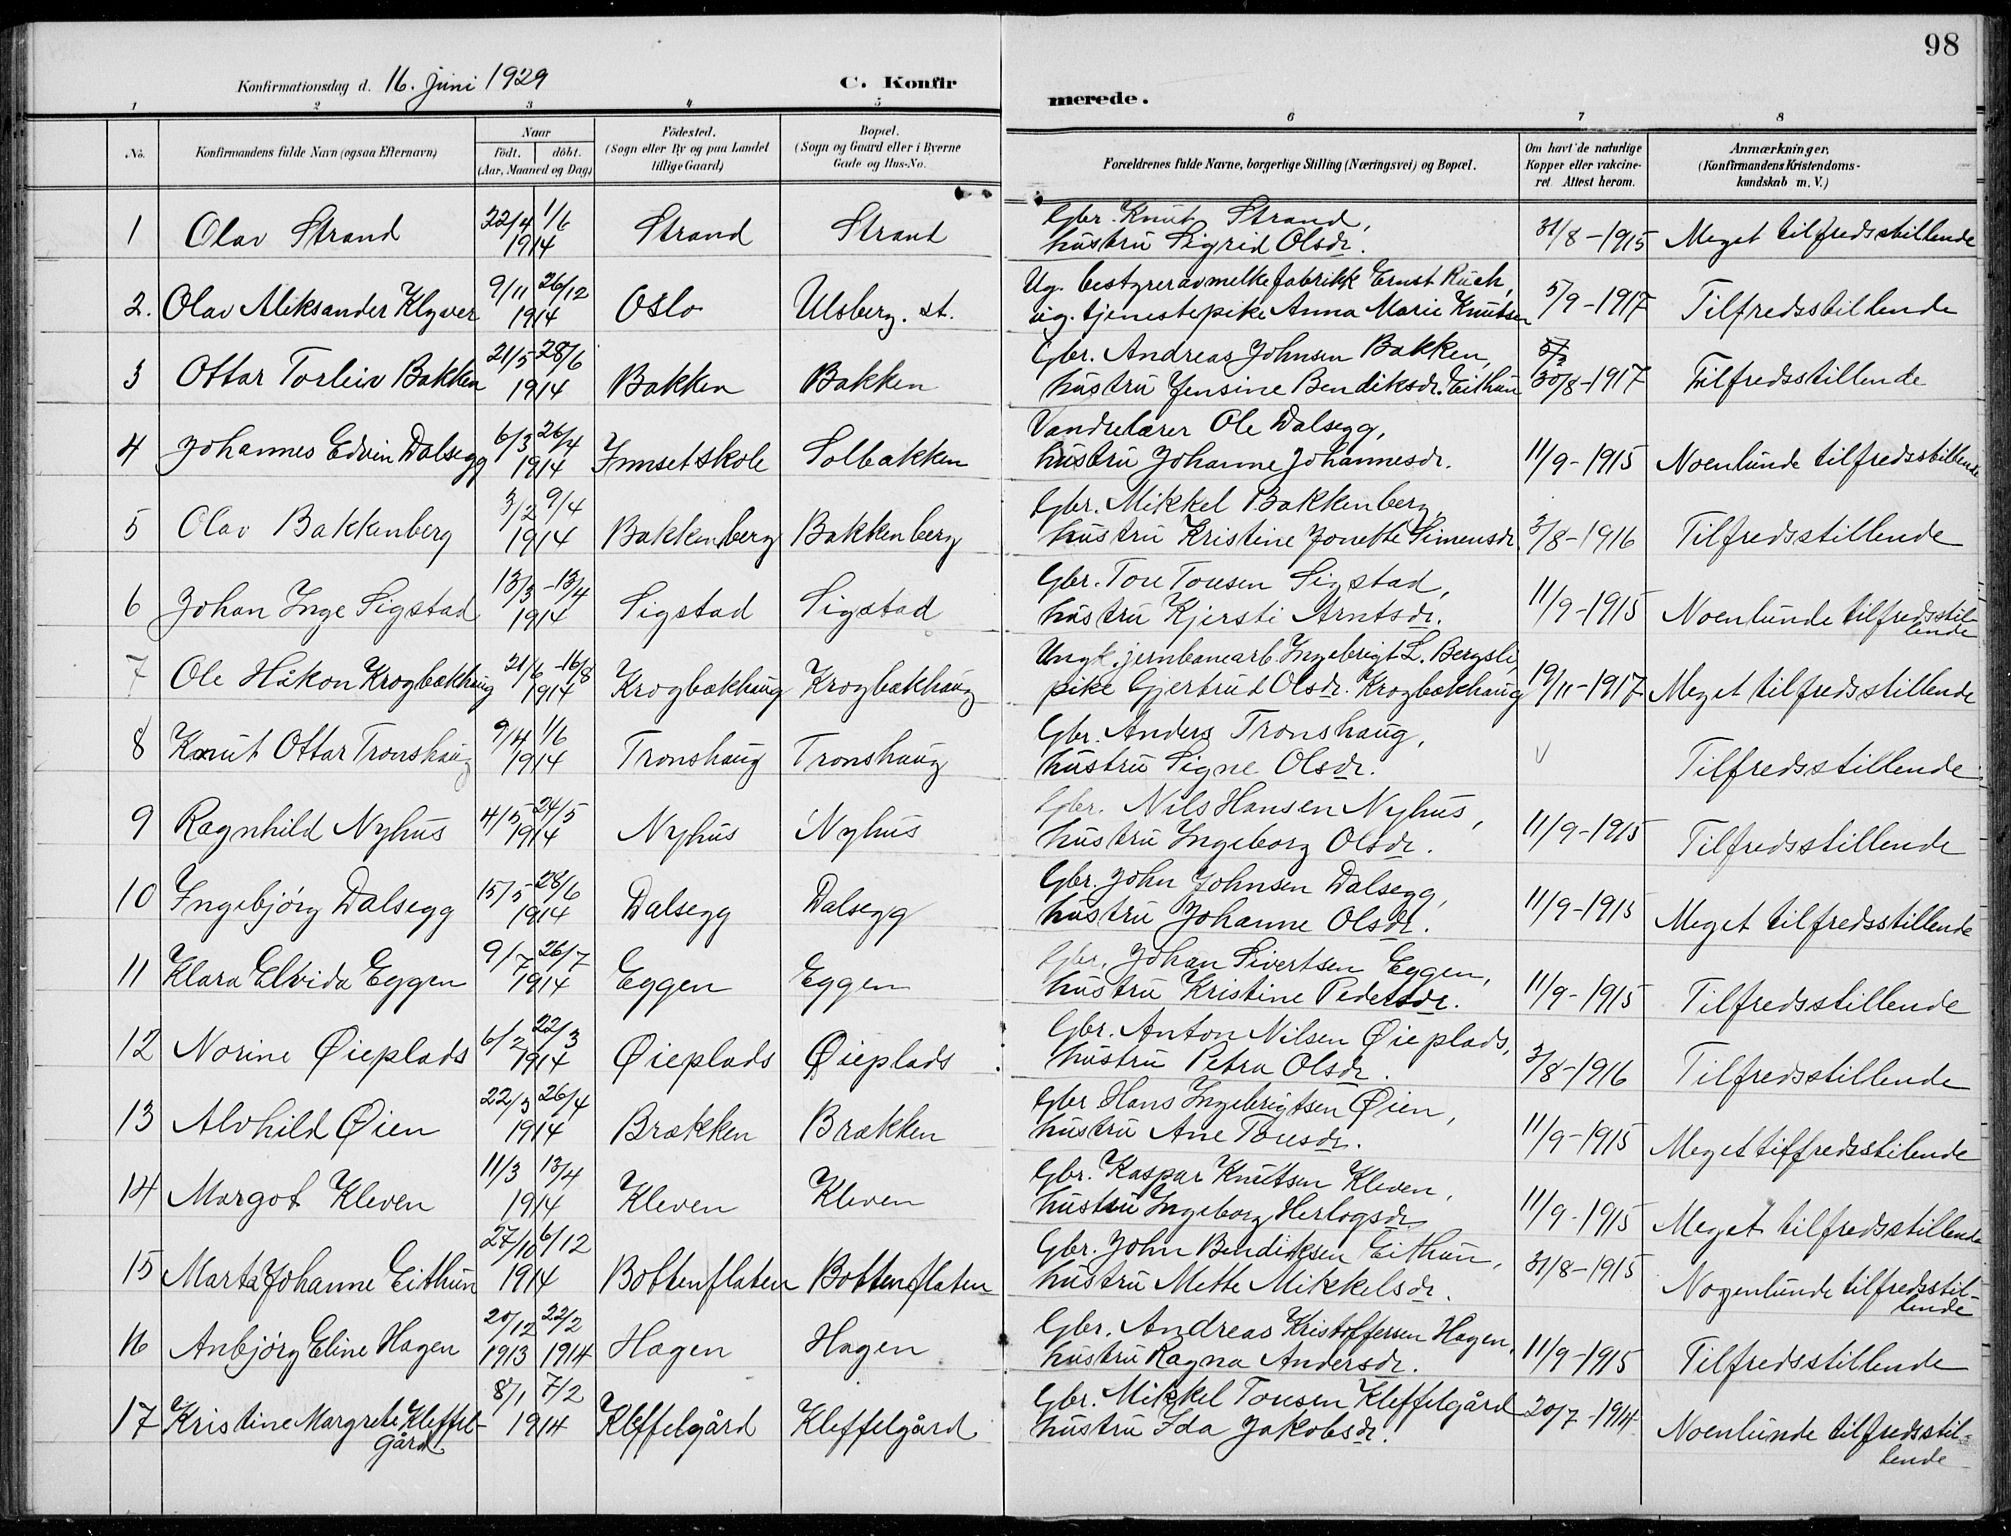 98
Konfirmationsdag d. 16. juni 1929
C. Konfirmerede.
1 2 3 4 5 6 7 8
No.
Konfirmandens fulde Navn (ogsaa Efternavn)
Naar
födt. döbt.
(Aar, Maaned og Dag)
Födested.
(Sogn eller By og paa Landet
tillige Gaard)
Bopæl.
(Sogn og Gaard eller i Byerne
Gade og Hus-No.
Forældrenes fulde Navne, borgerlige Stilling (Næringsvei) og Bopæl.
Om havt de naturlige
Kopper eller vakcine-
ret. Attest herom.
Anmærkninger.
(Konfirmandens Kristendoms-
kundskab m. V.)
1 Olav Strand 22/4 1/6 1914 Strand Strand
Gbr. Knut Strand,
hustru Sigrid Olsdr. 31/8-1915 Meget tilfredsstillende
2. Olav Aleksander Klyver 9/11 26/12 1914 Oslo Ulsberg. st.
Ug. bestyrer av melkefabrikk Ernst Ruch,
ug. tjenestepike Anna Marie Knutsen 5/9-1917 Tilfredsstillende
3 Ottar Torleiv Bakken 21/5 28/6 1914 Bakken Bakken
Gbr. Andreas Johnsen Bakken,
hustru Jensine Bendiksdr. Eithun 30/8-1917 Tilfredsstillende
4 Johannes Edvin Dalsegg 6/3 26/4 1914 Innset skole Solbakken
Vandrelærer Ole Dalsegg,
hustru Johanne Johannesdr. 11/9-1915 Noenlunde tilfredsstillende
5 Olav Bakkenberg 3/2 9/4 1914 Bakkenberg Bakkenberg
Gbr. Mikkel Bakkenberg,
hustru Kristine Jonette Simensdr. 3/8-1916 Tilfredsstillende
6 Johan Inge Sigstad 13/3 -13/4 1914 Sigstad Sigstad
Gbr. Tore Toresen Sigstad,
hustru Kjersti Arntsdr. 11/9-1915 Noenlunde tilfredsstil-
lende
7 Ole Håkon Krogbækhaug 21/6 -16/8 1914 Krogbækhaug Krogbækhaug
Ungk. jernbanearb. Ingebrigt L. Bergsli
pike Gjertrud Olsdr. Krogbækhaug 19/11-1917 Meget tilfredsstillende
8 Knut Ottar Tronshaug 9/4 1/6 1914 Tronshaug Tronshaug
Gbr. Anders Tronshaug,
hustru Signe Olsdr. Tilfredsstillende
9 Ragnhild Nyhus 4/5 24/5 1914 Nyhus Nyhus
Gbr. Nils Hansen Nyhus,
hustru Ingeborg Olsdr. 11/9-1915 Tilfredsstillende
10 Ingebjørg Dalsegg 15/5 28/6 1914 Dalsegg Dalsegg
Gbr. John Johnsen Dalsegg,
hustru Johanne Olsdr. 11/9-1915 Meget tilfredsstillende
11 Klara Elvida Eggen 9/7 26/7 1914 Eggen Eggen
Gbr. Johan Sivertsen Eggen,
hustru Kristine Pedersdr. 11/9-1915 Tilfredsstillende
12 Norine Øieplads 6/2 22/3 1914 Øieplads Øieplads
Gbr. Anton Nilsen Øieplads,
hustru Petra Olsdr. 3/8-1916 Tilfredsstillende
13 Alvhild Øien 22/3 26/4 1914 Brækken Brækken
Gbr Hans Ingebrigtsen Øien,
hustru Ane Toresdr. 11/9-1915 Meget tilfredsstilende
14 Margot Kleven 11/3 13/4 1914 Kleven Kleven
Gbr. Kaspar Knutsen Kleven,
hustru Ingeborg Herlogsdr 11/9-1915 Meget tilfredsstillende
15 Marta Johanne Eithun 27/10 6/12 1914 Bottenflaten Bottenflaten
Gbr. John Bendiksen Eithun,
hustru Mette Mikkelsdr. 31/8-1915 Nogenlunde tilfredsstil-
lende
16 Anbjørg Eline Hagen 20/12 1913 22/2 1914 Hagen Hagen
Gbr. Andreas Kristoffersen Hagen,
hustru Ragna Andersdr. 11/9-1915 Tilfredsstillende
17 Kristine Margrete Kleffel-
gård 8/1 7/2 1914 Kleffelgård Kleffelgård
Gbr. Mikkel Toresen Kleffelgård
hustru Ida Jakobsdr. 20/7-1914 Noenlunde tilfredsstil-
lende